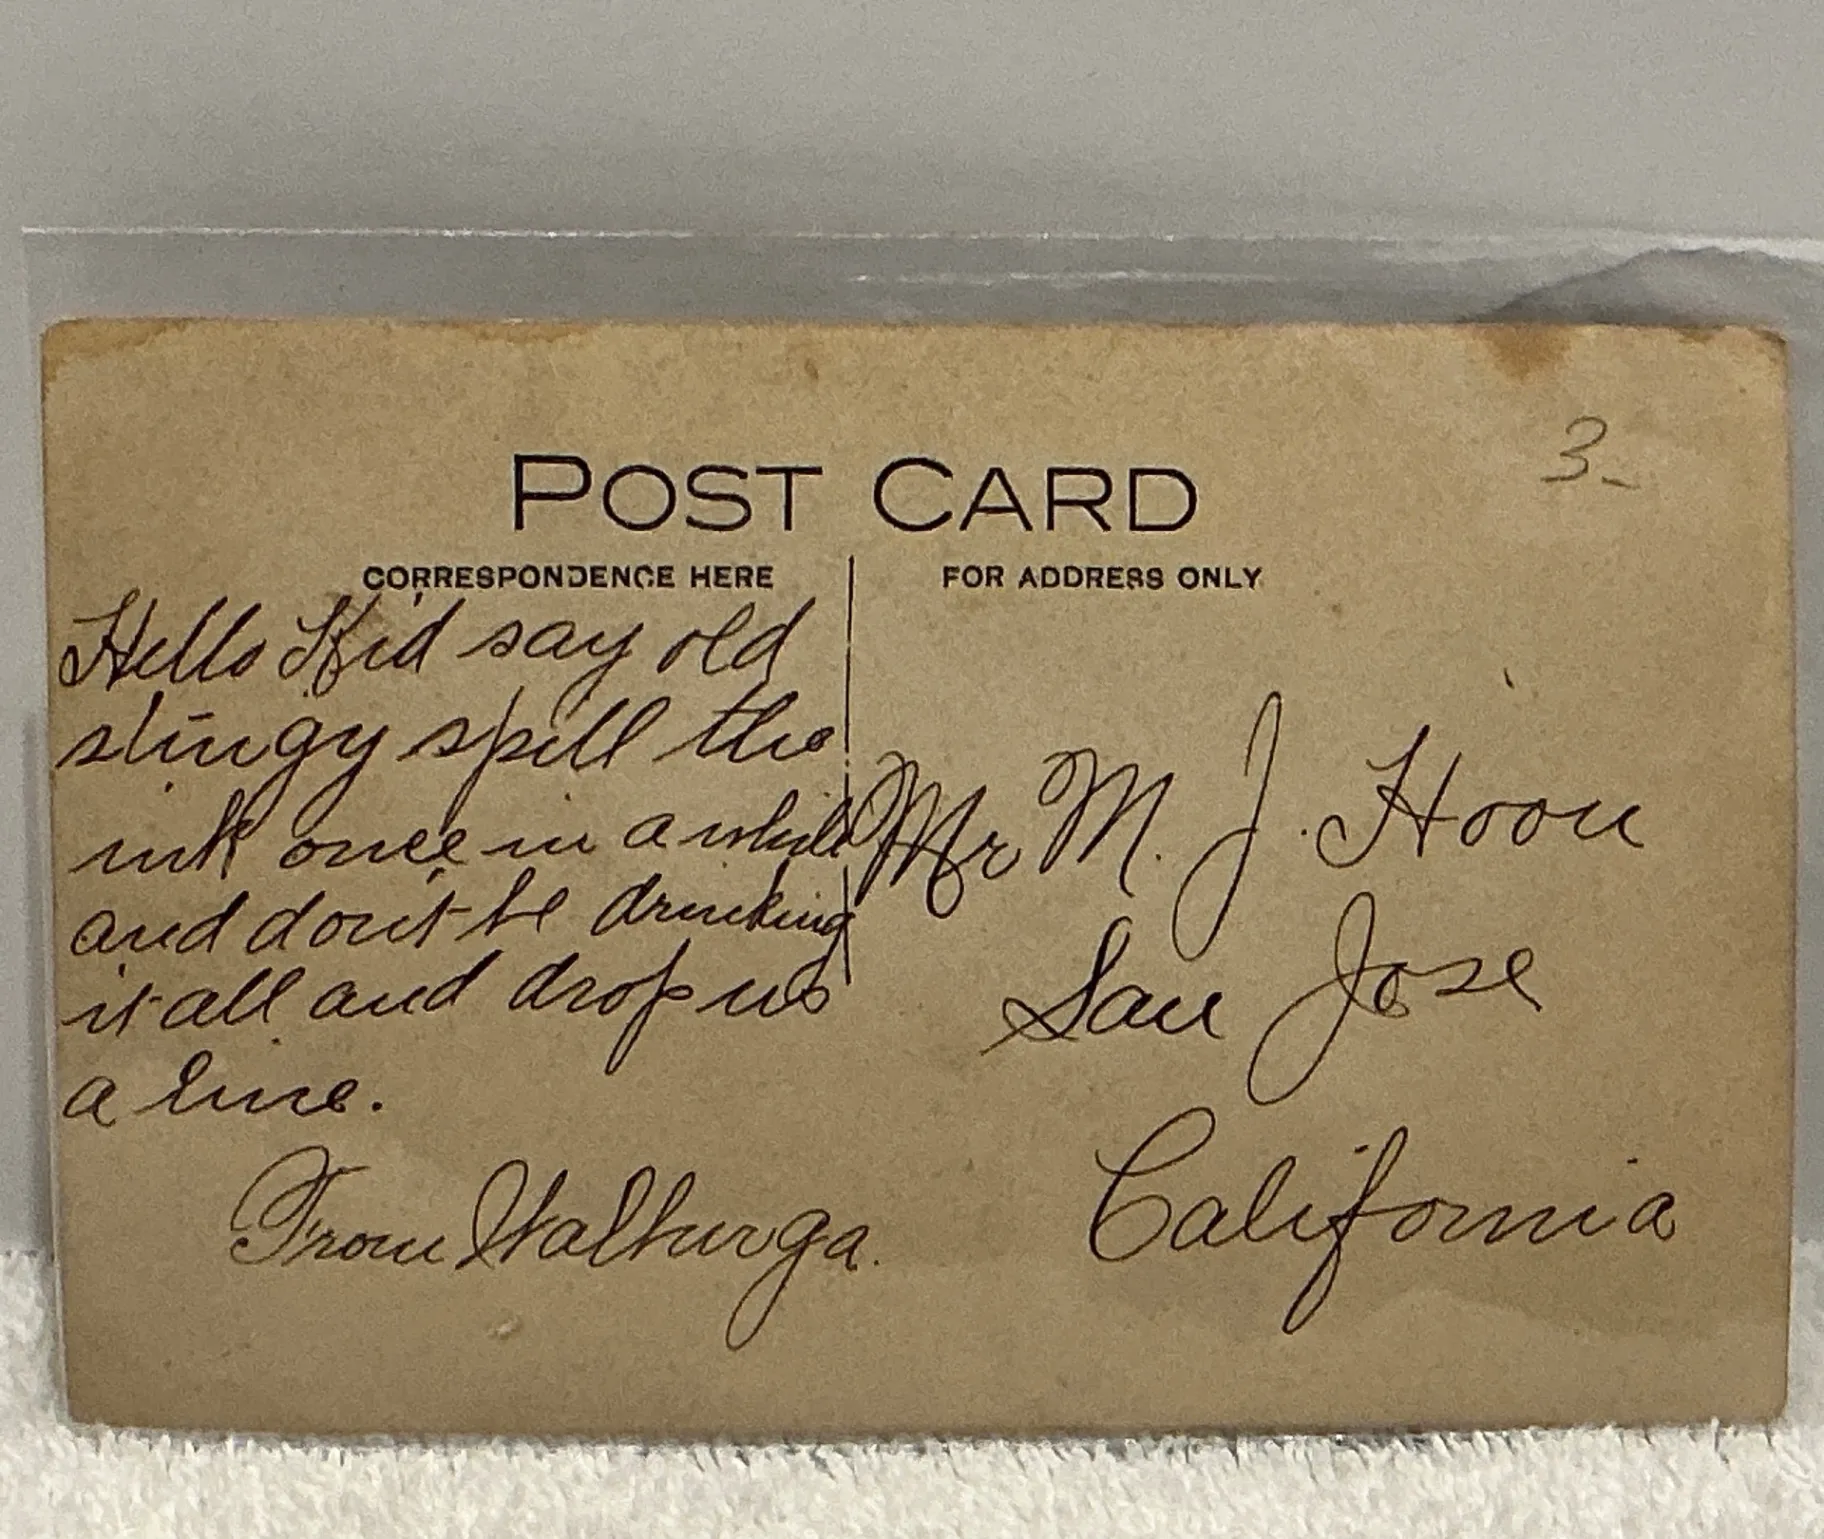 3-
POST CARD
CORRESPONDENCE HERE
FOR ADDRESS ONLY
Hello Kid say old
stingy spill the
ink once in a while
and don't be drinking
it all and drop us
a line.
From Walburga.
Mr M. J. Hoon
San Jose
California